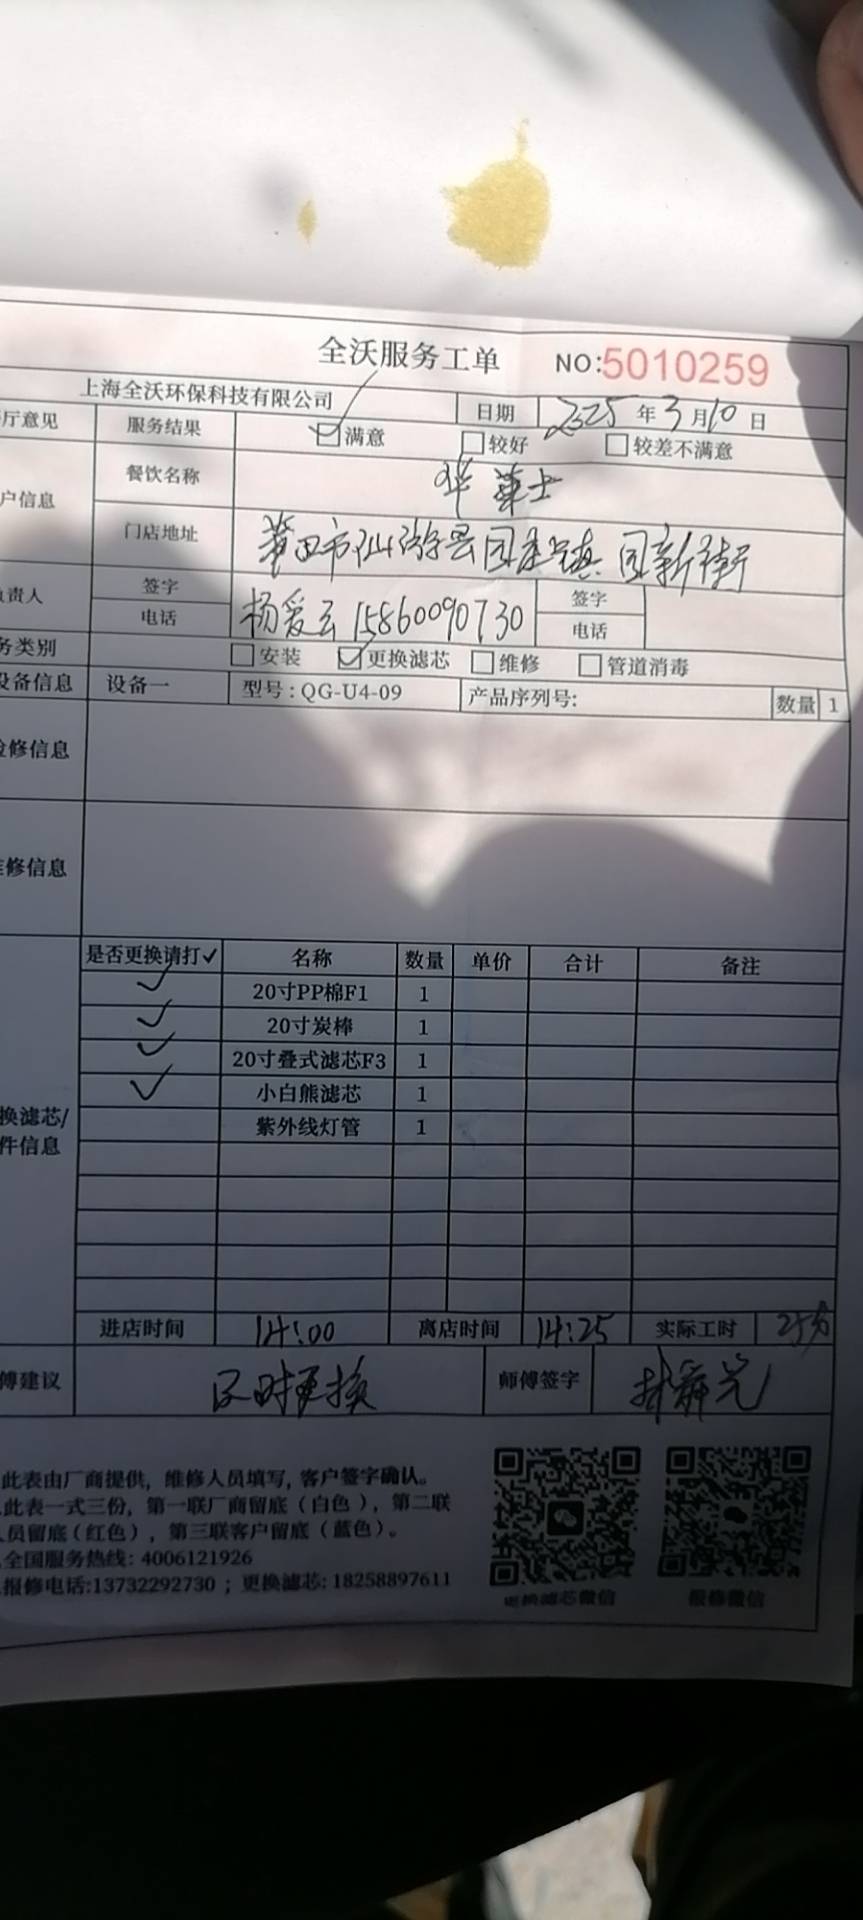 全沃服务工单 NO:5010259
上海全沃环保科技有限公司 日期 2025 年 3 月 10 日
厅意见 服务结果 ☑满意 □较好 □较差不满意
户信息 餐饮名称 华莱士
门店地址 莆田市仙游县园庄镇 园新街
负责人 签字 杨爱云 签字
电话 15860090730 电话
务类别 □安装 ☑更换滤芯 □维修 □管道消毒
设备信息 设备一 型号:QG-U4-09 产品序列号: 数量 1
检修信息
维修信息
换滤芯/
件信息
是否更换请打✓ 名称 数量 单价 合计 备注
✓ 20寸PP棉F1 1
✓ 20寸炭棒 1
✓ 20寸叠式滤芯F3 1
✓ 小白熊滤芯 1
紫外线灯管 1
进店时间 14:00 离店时间 14:25 实际工时 25分
傅建议 及时更换 师傅签字
此表由厂商提供, 维修人员填写, 客户签字确认。
此表一式三份, 第一联厂商留底(白色), 第二联
人员留底(红色), 第三联客户留底(蓝色)。
全国服务热线: 4006121926
报修电话:13732292730 ; 更换滤芯: 18258897611
更换滤芯微信 报修微信